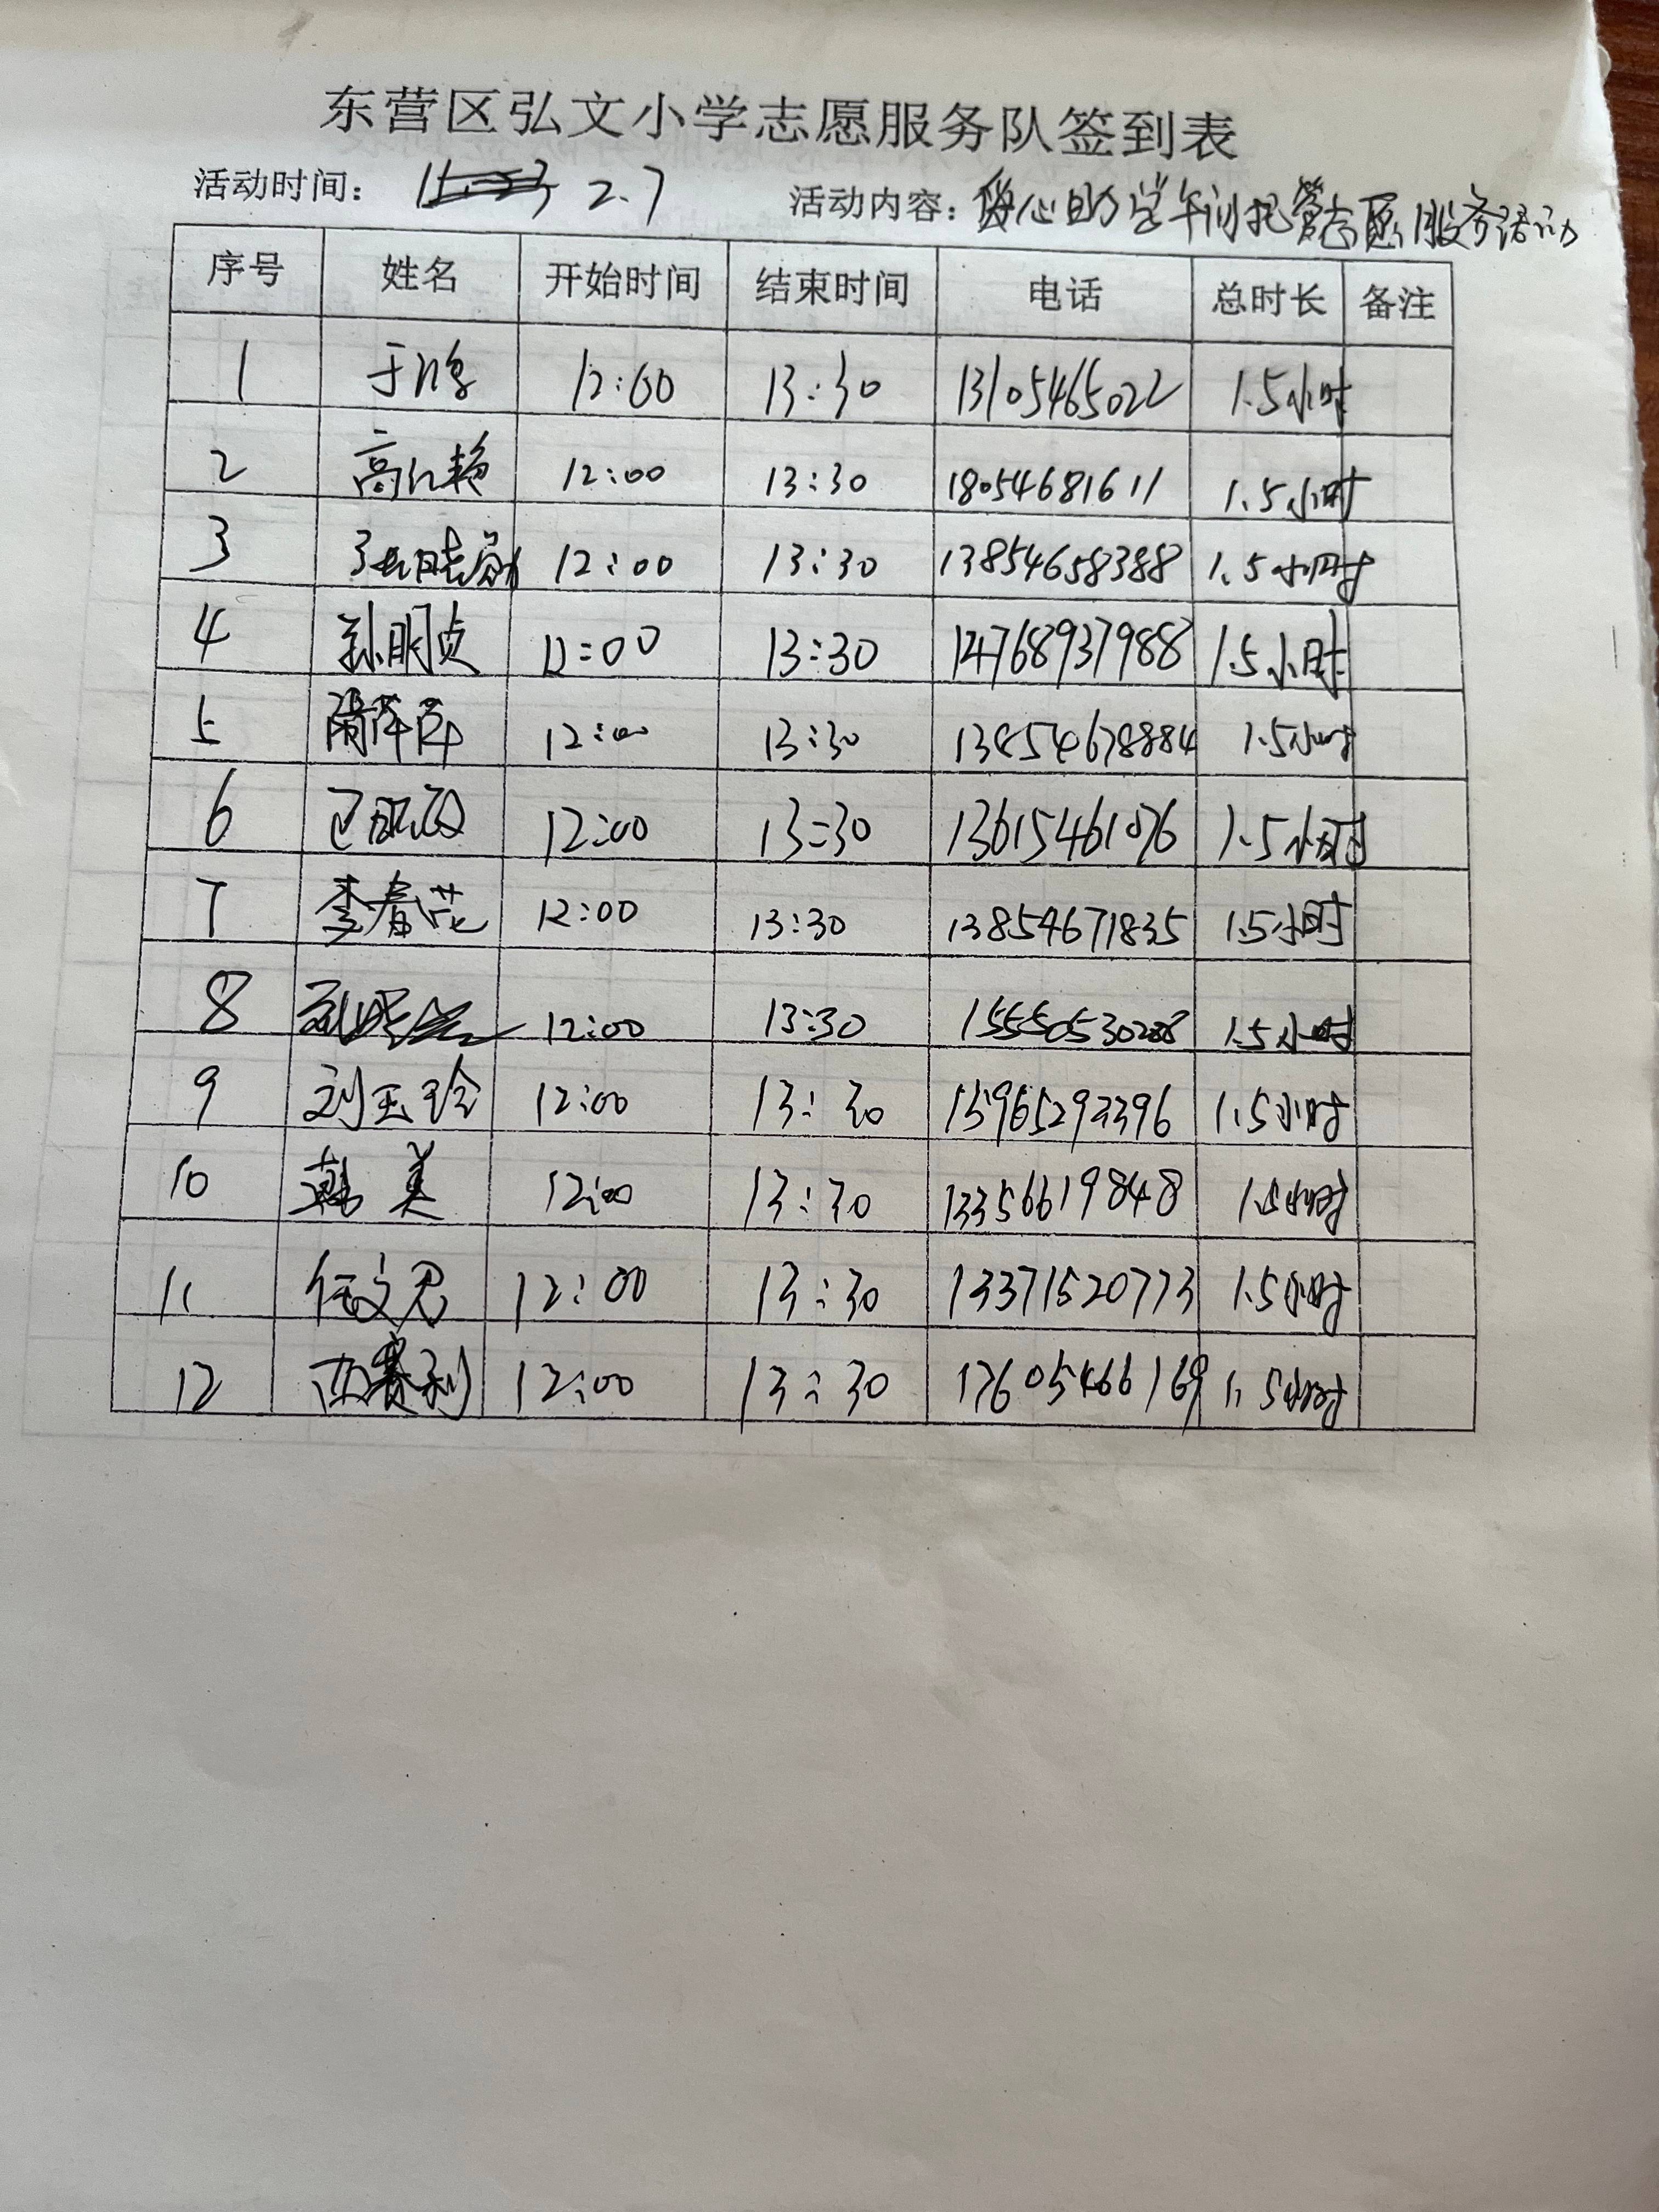 东营区弘文小学志愿服务队签到表
活动时间： 2.7 活动内容：爱心助学午间托管志愿服务活动
序号 姓名 开始时间 结束时间 电话 总时长 备注
1 12:00 13:30 13105465022 1.5小时
2 高红艳 12:00 13:30 18054681611 1.5小时
3 12:00 13:30 13854658388 1.5小时
4 孙明贞 12:00 13:30 14768937988 1.5小时
5 隋萍萍 12:00 13:30 13854678884 1.5小时
6 12:00 13:30 13615461076 1.5小时
7 李春花 12:00 13:30 13854671835 1.5小时
8 12:00 13:30 1.5小时
9 刘玉玲 12:00 13:30 15965292396 1.5小时
10 韩美 12:00 13:30 13356619848 1.5小时
11 任文思 12:00 13:30 13371520773 1.5小时
12 12:00 13:30 17605466169 1.5小时